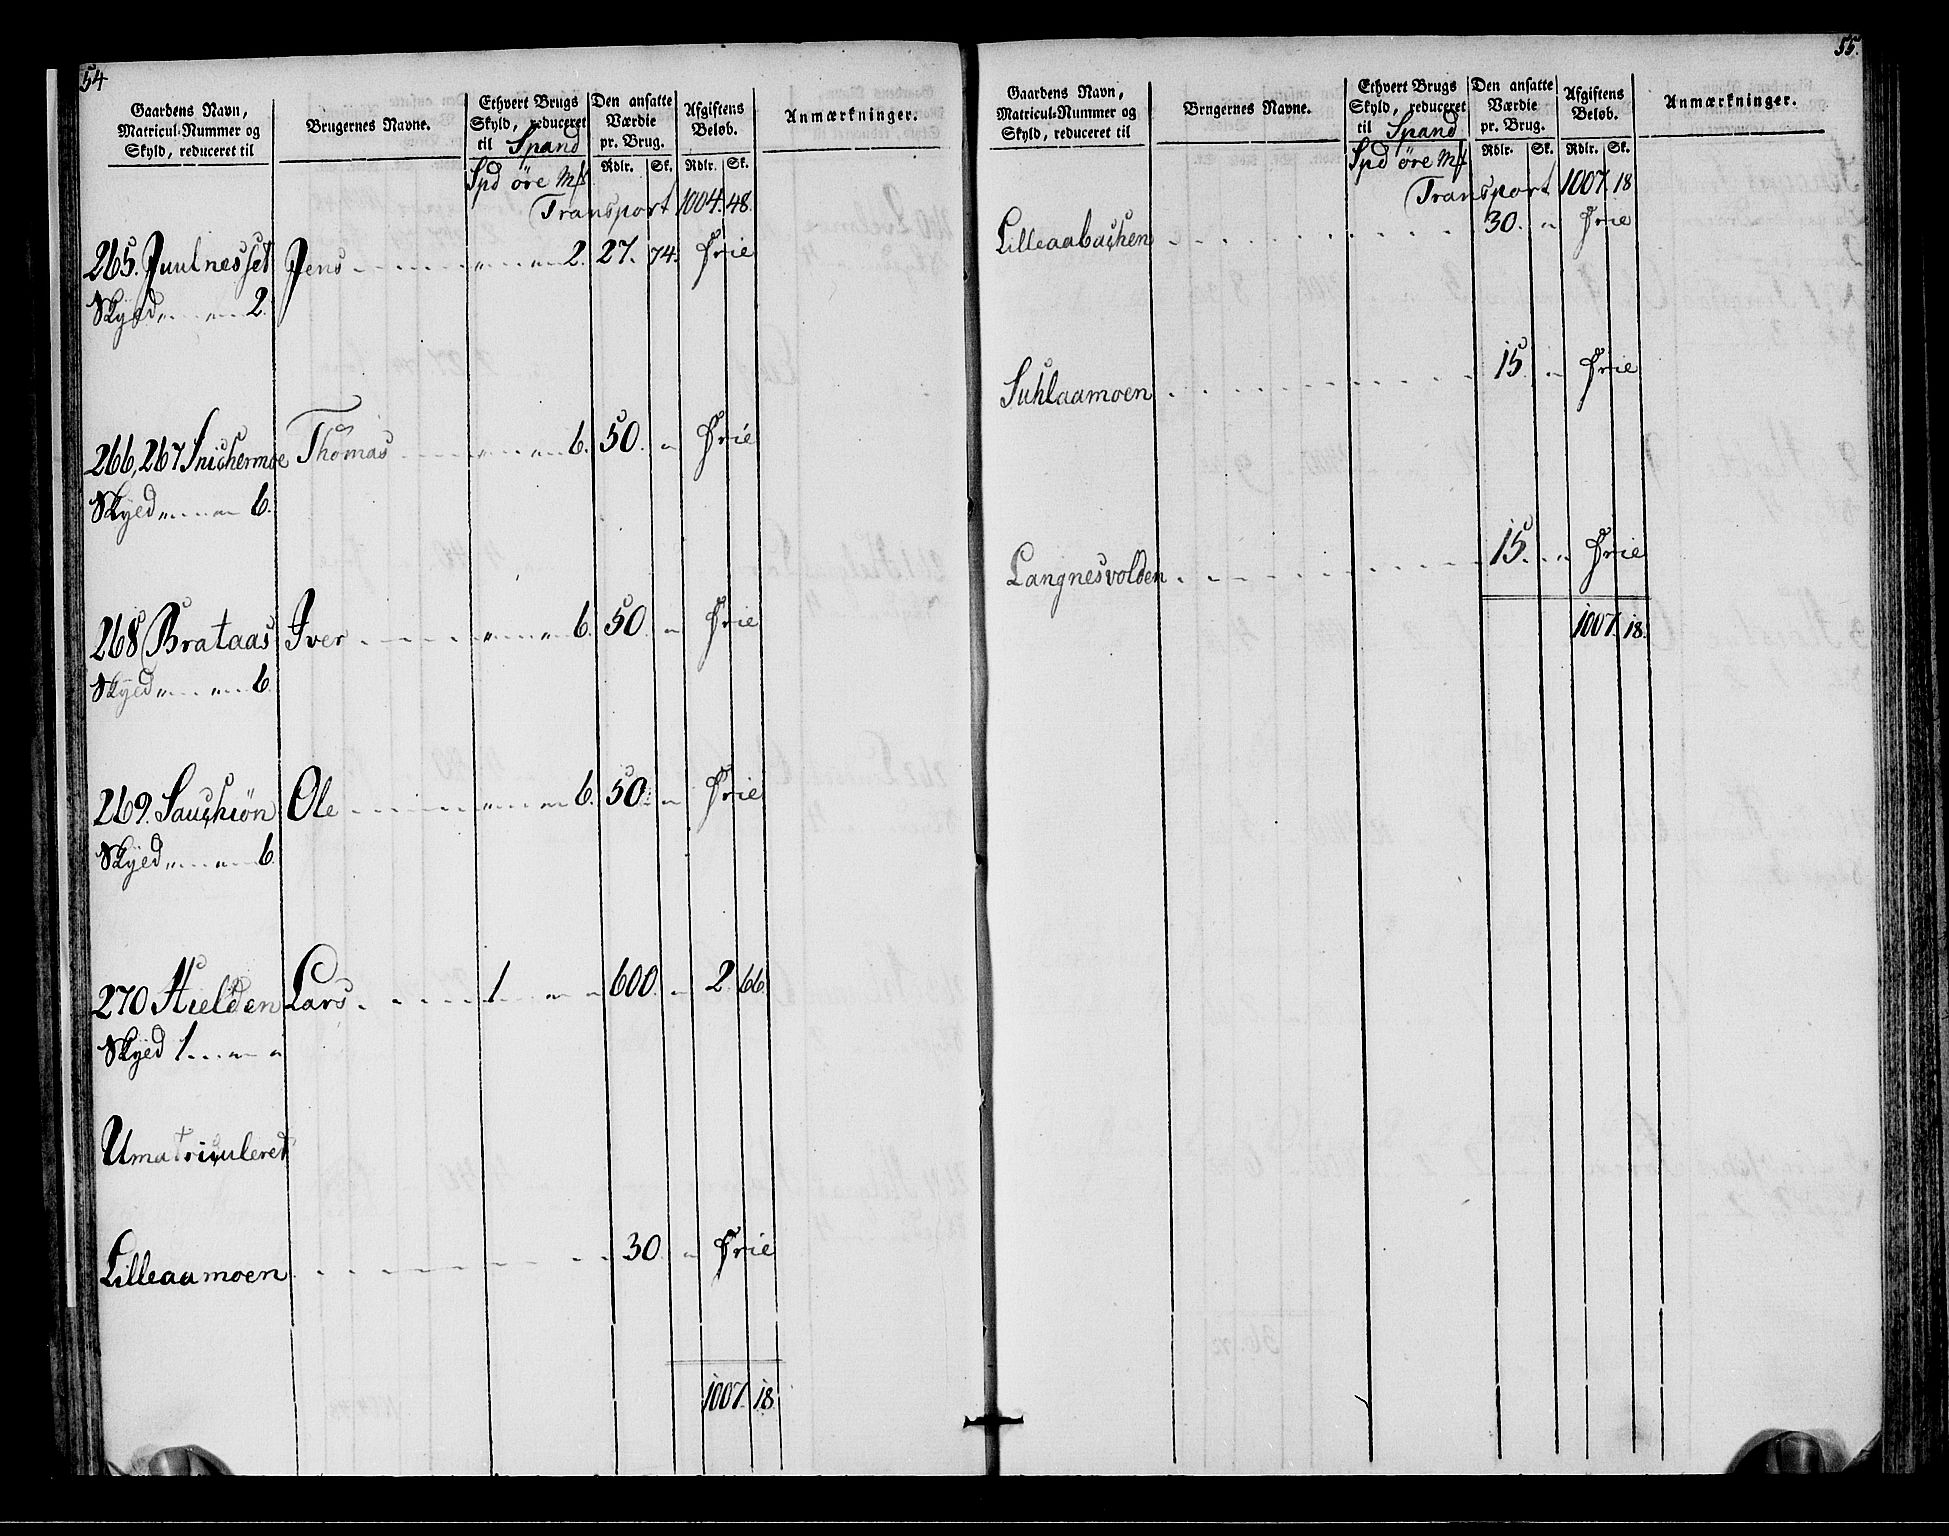 54
Gaardens Navn, Matricul-Nummer og Skyld, reduceret til
Brugernes Navne.
Ethvert Brugs Skyld, reduceret til Spand
Den ansatte Værdie pr. Brug.
Afgiftens Beløb.
Anmærkninger.
Spd öre Mk Rdlr. Sk. Rdlr. Sk.
Transport 1004. 48.
265. Juulnesset Jens 2. 27. 74. Frie
Skyld 2.
266, 267 Snichermoe Thomas 6. 50. Frie
Skyld 6.
268 Brataas Iver 6. 50. Frie
Skyld 6.
269. Sauchiön Ole 6. 50. Frie
Skyld 6.
270 Hielden Lars 1 600. 2. 66.
Skyld 1
Umatriculeret
Lilleaamoen 30. Frie
1007. 18.
55.
Gaardens Navn, Matricul-Nummer og Skyld, reduceret til
Brugernes Navne.
Ethvert Brugs Skyld, reduceret til Spand
Den ansatte Værdie pr. Brug.
Afgiftens Beløb.
Anmærkninger.
Spd öre Mk Rdlr. Sk. Rdlr. Sk.
Transport 1007. 18
Lilleaabachen 30. Frie
Suhlaamoen 15 Frie
Langnesvolden 15. Frie
1007. 18.